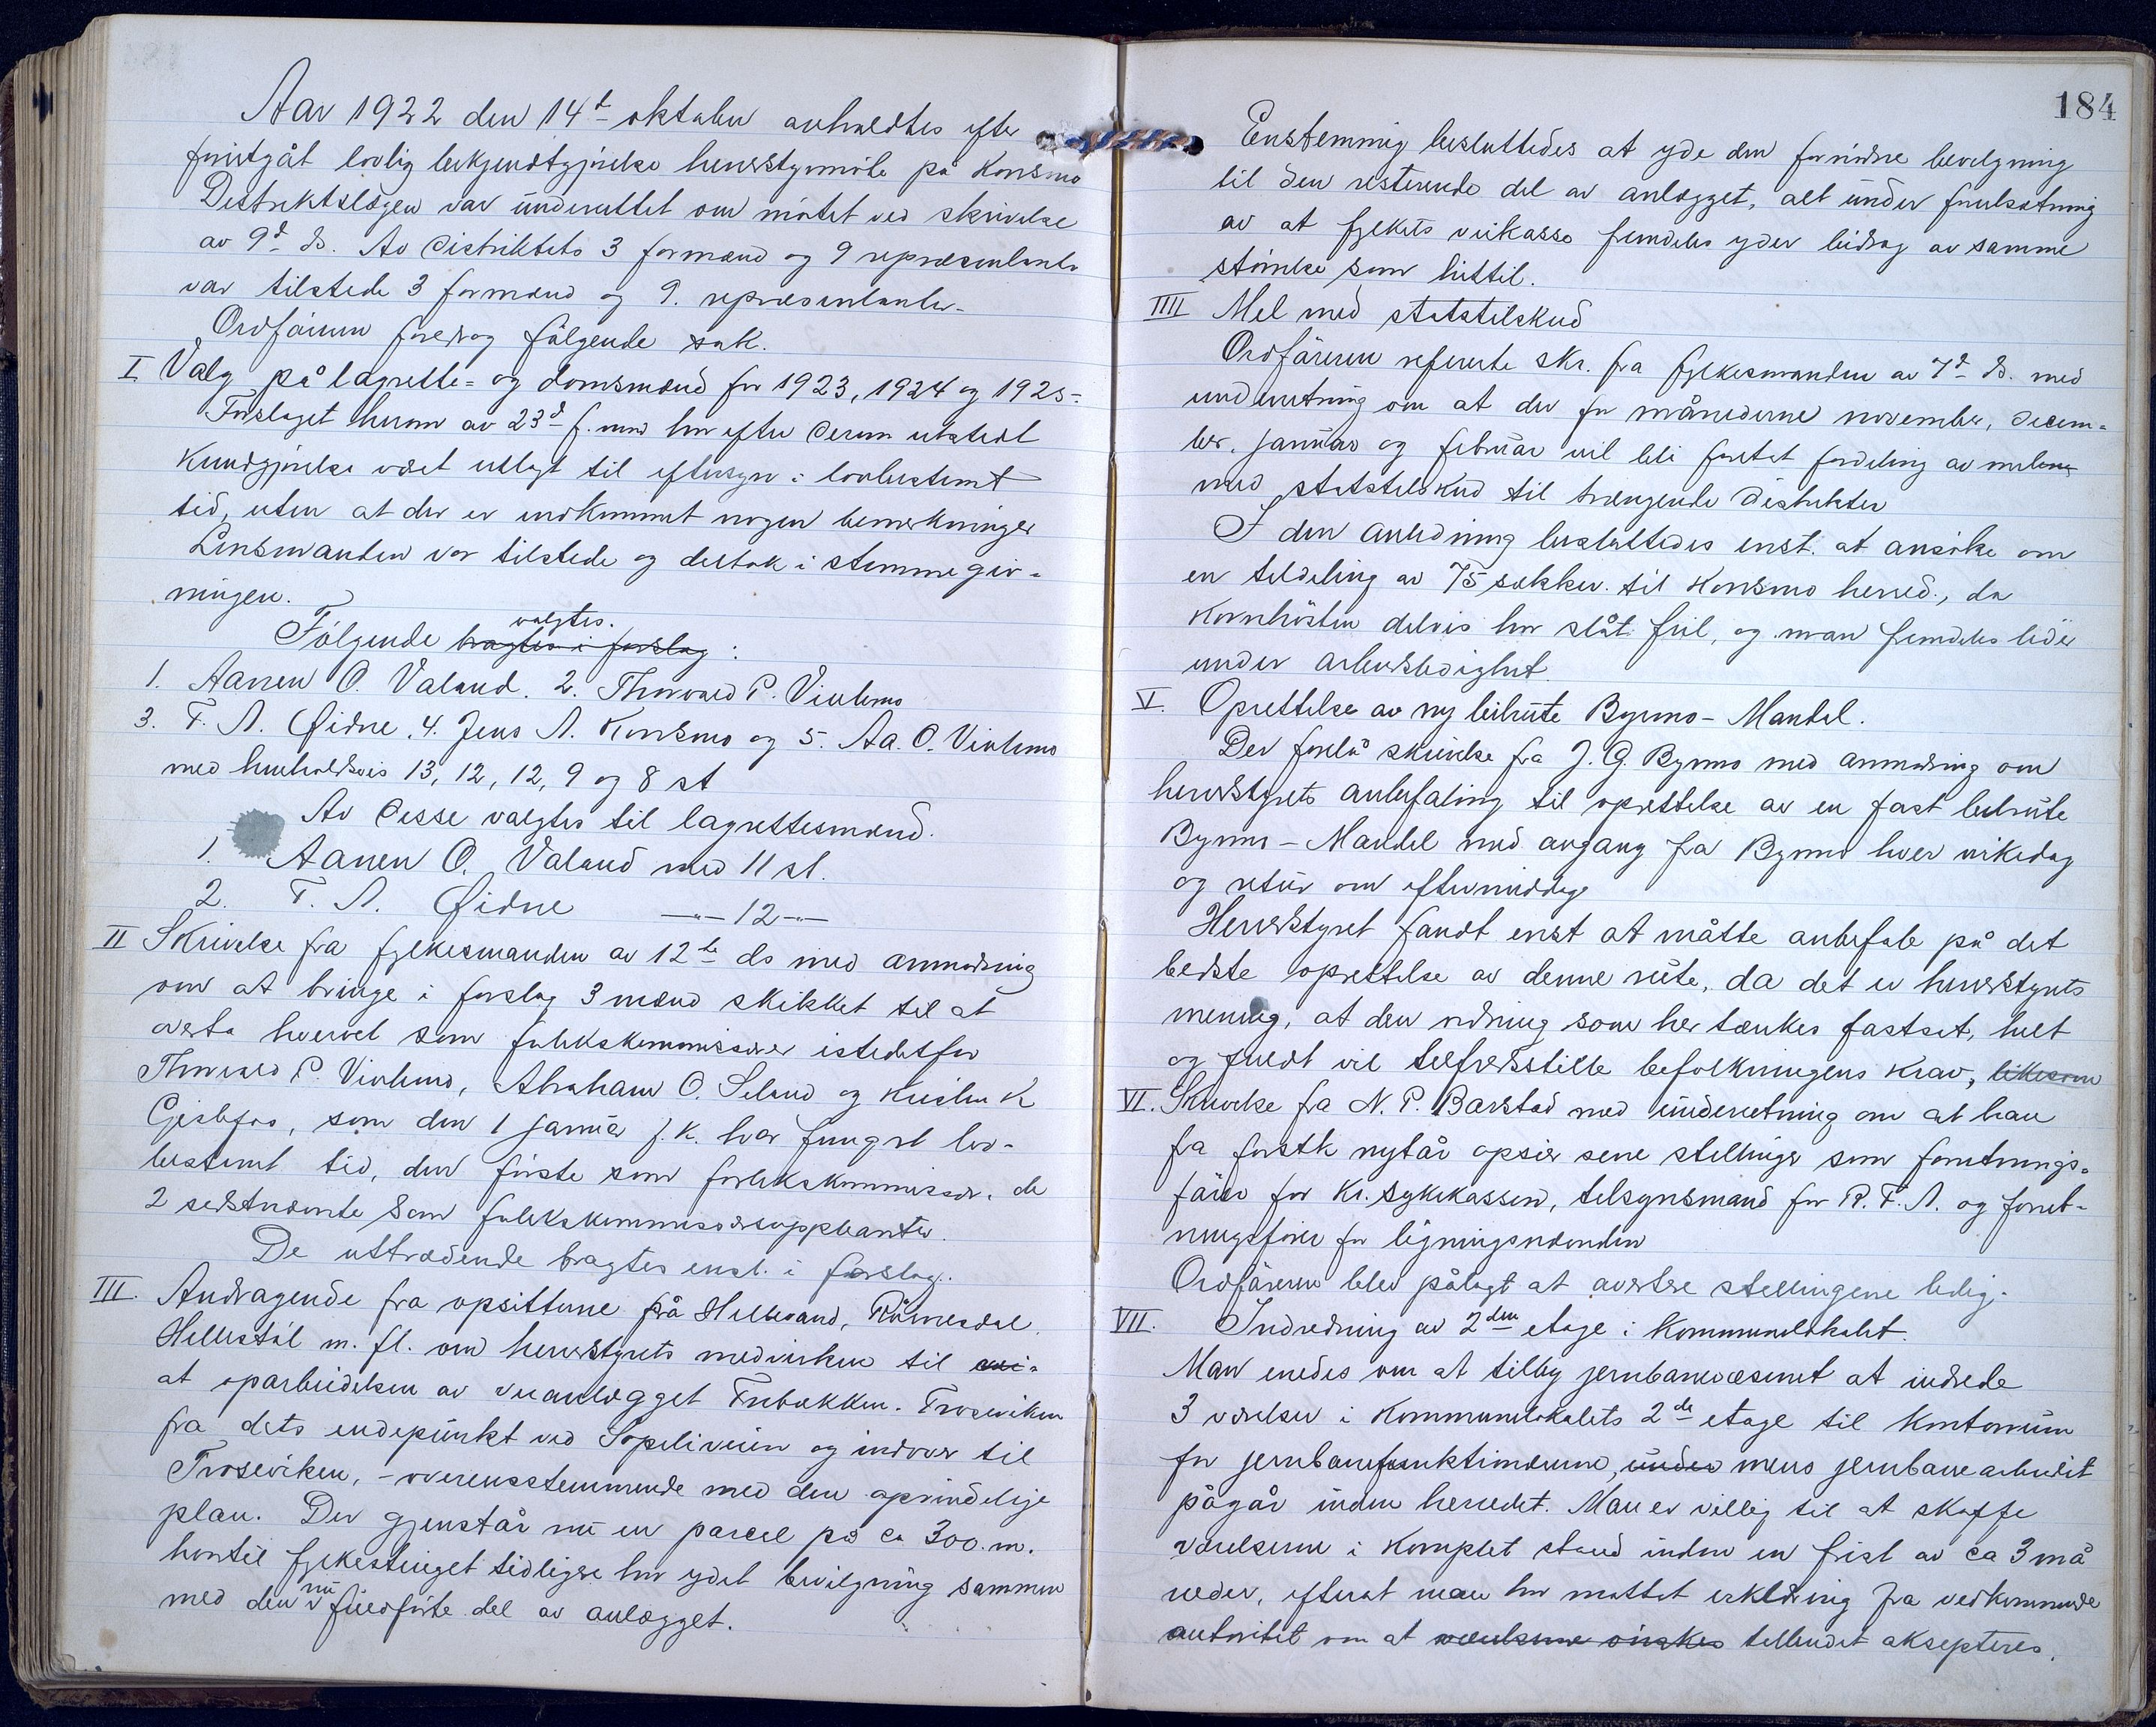 Aar 1922 den 14d oktober avholdtes efter
forutgåt lovlig bekjendtgjörelse herredstyremöte på Konsmo
Distriktslægen var underrettet om mötet ved skrivelse
av 9d ds. Av distriktets 3 formænd og 9 repræsentanter
var tilstede 3 formænd og 9. repræsentanter.
Ordföreren foredrog fölgende sak.
I Valg på lagrette- og domsmænd for 1923, 1924 og 1925.
Forslaget herom av 23d f. mnd har efter derom utstedt
Kundgjörelse været utlagt til eftersyn i lovbestemt
tid, uten at der er indkommet nogen bemerkninger
Lensmanden var tilstede og deltok i stemmegiv-
ningen.
valgtes.
Fölgende bragtes i forslag:
1. Aanen O. Valand. 2. Thorvald P. Viblemo
3. T. A. Øidne, 4. Jens A. Konsmo og 5. Aa. O. Viblemo
med henholdsvis 13, 12, 12, 9 og 8 st
Av disse valgtes til lagrettesmænd.
1. Aanen O. Valand med 11 st.
2. T. A. Øidne —"— 12 —"—
II Skrivelse fra fylkesmanden av 12te ds med anmodning
om at bringe i forslag 3 mænd skikket til at
overta hvervet som forlikskommissær istedetfor
Thorvald P. Viblemo, Abraham O. Seland og Kristen K
Gislefos, som den 1 januar f. k. har fungert lov-
bestemt tid, den förste som forlikskommissær, de
2 sidstnævnte som forlikskommissærsuppleanter.
De uttrædende bragtes enst. i forslag.
III. Andragende fra opsitterne på Hillesand, Råmesdal,
Hillestöl m. fl. om herredstyrets medvirken til
at oparbeidelsen av veianlægget Trebækken - Troseviken
fra dets endepunkt ved Sopeliveien og indover til
Troseviken, - overensstemmende med den oprindelige
plan. Der gjenstår nu en parcel på ca 300. m.
hvortil fylkestinget tidligere har ydet bevilgning sammen
med den nu fuldförte del av anlægget.
184
Enstemmig besluttedes at yde den fornödne bevilgning
til den resterende del av anlægget, alt under forutsætning
av at fylkets veikasse fremdeles yder bidrag av samme
störrelse som hittil.
IIII Mel med statstilskud
Ordföreren refererte skr. fra fylkesmanden av 7d ds. med
underretning om at der for månederne november, decem-
ber, januar og februar vil bli foretat fordeling av melene
med statstilskud til trængende distrikter
I den anledning besluttedes enst. at ansöke om
en tildeling av 75 sækker til Konsmo herred, da
Kornhösten delvis har slåt feil, og man fremdeles lider
under arbeidsledighet.
V. Oprettelse av ny bilrute Byremo - Mandal.
Der forelå skrivelse fra J. G. Byremo med anmodning om
herredstyrets anbefaling til oprettelse av en fast bilrute
Byremo - Mandal med avgang fra Byremo hver virkedag
og retur om eftermiddage
Herredstyret fandt enst at måtte anbefale på det
bedste oprettelse av denne rute, da det er herredstyrets
mening, at den ordning som her tænkes fastsat, helt
og fuldt vil tilfredsstille befolkningens krav, likesom
VI. Skrivelse fra N. P. Barstad med underretning om at han
fra förstk nytår opsier sine stillinger som forretnings-
förer for Kr. sykekassen, tilsynsmand for R. F. A. og forret-
ningsförer for ligningsnævnden
Ordföreren blev pålagt at avertere stillingene ledig.
VII. Indredning av 2den etage i kommunelokalet.
Man enedes om at tilby jernbanevæsenet at indrede
3 værelser i Kommunelokalets 2de etage til kontorrum
for jernbanefunktionærerne, under mens jernbanearbeidet
pågår inden herredet. Man er villig til at skaffe
værelserne i komplet stand inden en frist av ca 3 må
neder, efterat man har mottat erklæring fra vedkommende
autoritet om at værelserne önskes tilbudet aksepteres.